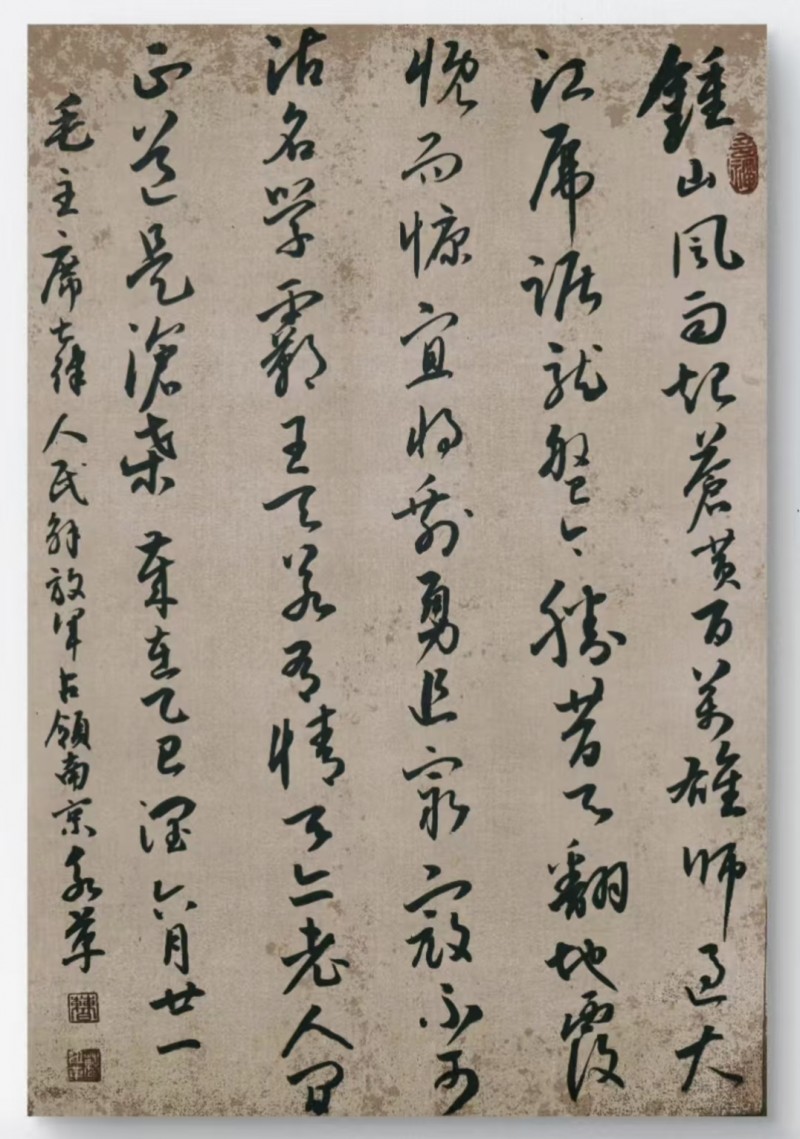 鍾山風雨起蒼黃百萬雄師過大
江虎踞龍盤今勝昔天翻地覆
慨而慷宜將剩勇追窮寇不可
沽名學霸王天若有情天亦老人間
正道是滄桑歲在乙巳潤六月廿一
毛主席七律人民解放軍占領南京永草